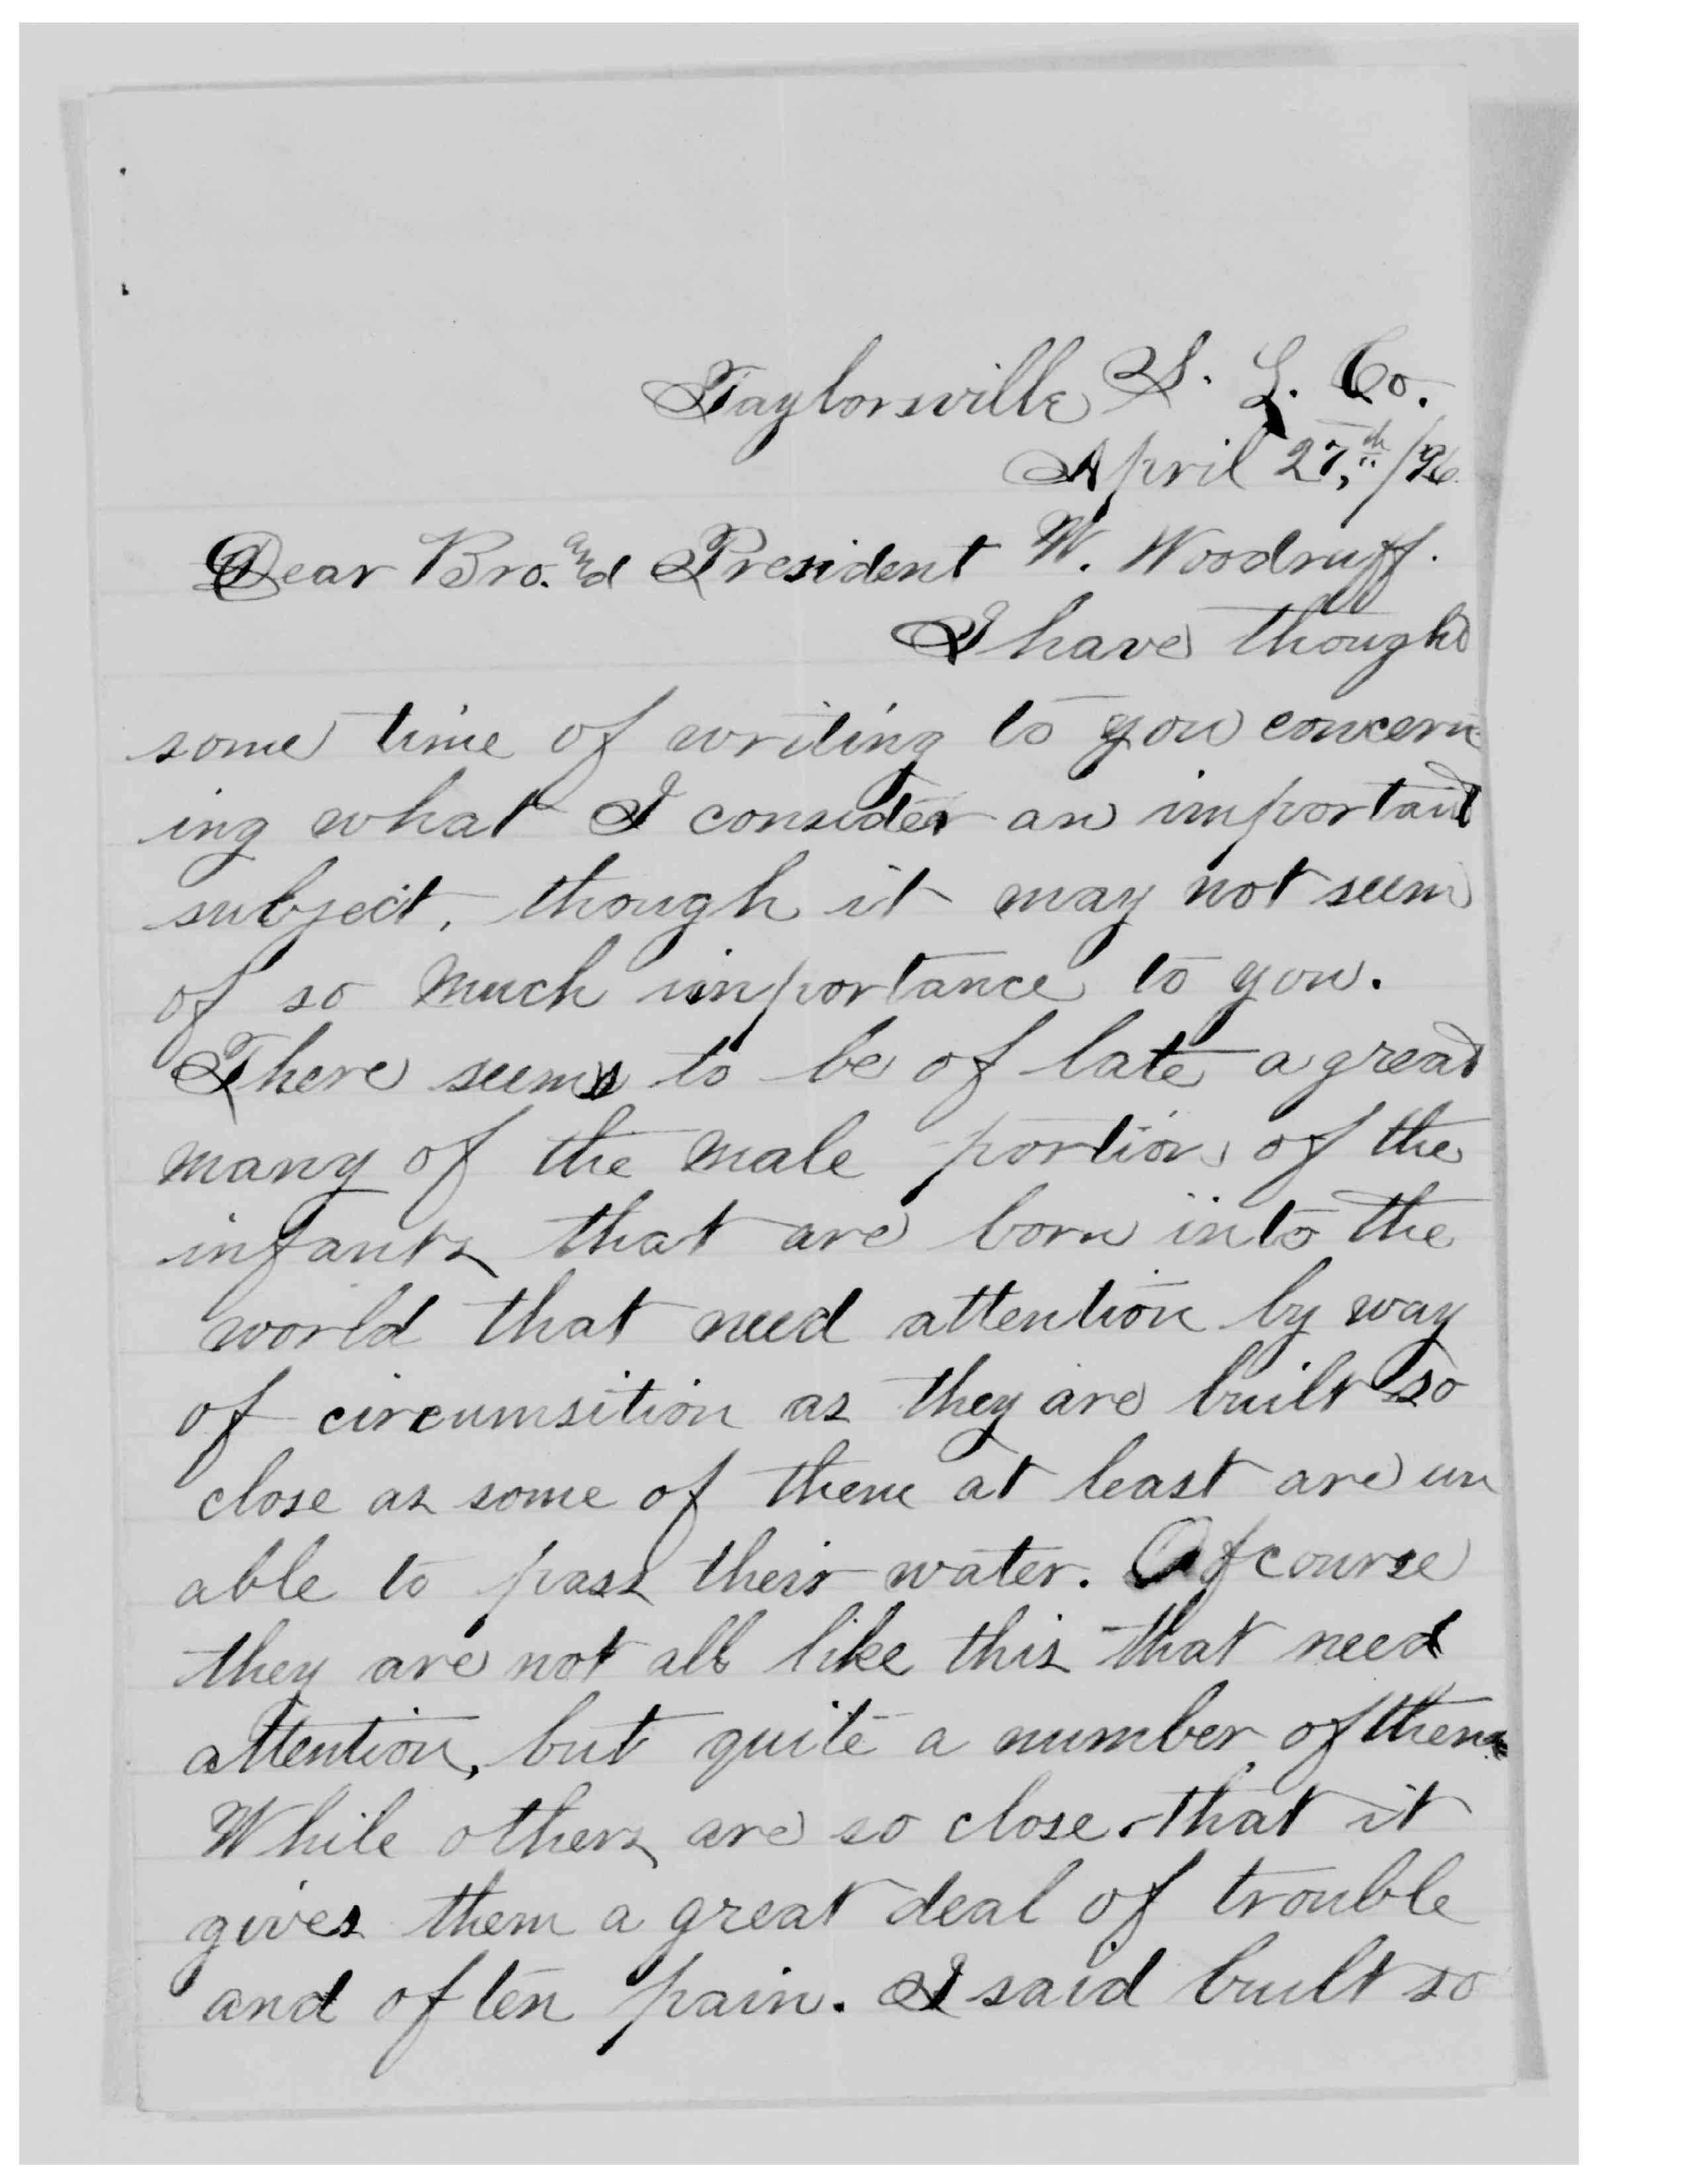 Taylorsville S. L. Co.
April 27,th /96.
Dear Bro. and President W. Woodruff.
I have thought
some time of writing to you concern
ing what I consider an important
subject, though it may not seem
of so much importance to you.
There seems to be of late a great
many of the male portion of the
infants that are born into the
world that need attention by way
of circumsition as they are built so
close as some of them at least are un
able to pass their water. Of course
they are not all like this that need
attention, but quite a number of them
While others are so close that it
gives them a great deal of trouble
and often pain. I said built so